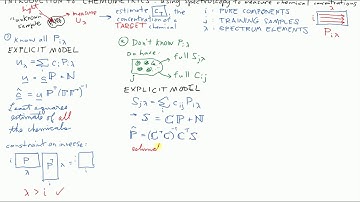 INTRODUCTION TO CHEMOMETRICS: using spectroscopy to measure chemical concentrations
light
"unknown" sample
measure
U_λ
estimate C_T, the concentration of a TARGET chemical
i: PURE COMPONENTS
j: TRAINING SAMPLES
λ: SPECTRUM ELEMENTS
P_iλ
① Know all P_iλ
EXPLICIT MODEL
U_λ = Σ c_i P_iλ
u = c P + n
ĉ = u P^T (P P^T)^-1
Least squares
estimate of all
the chemicals.
constraint on inverse:
i P P^T λ = i
λ i
λ > i ✓
② Don't know P_iλ
Do have:
full S_jλ
full C_ij
EXPLICIT MODEL
S_jλ = Σ c_ij P_iλ
→ S = C P + N
P̂ = (C^T C)^-1 C^T S